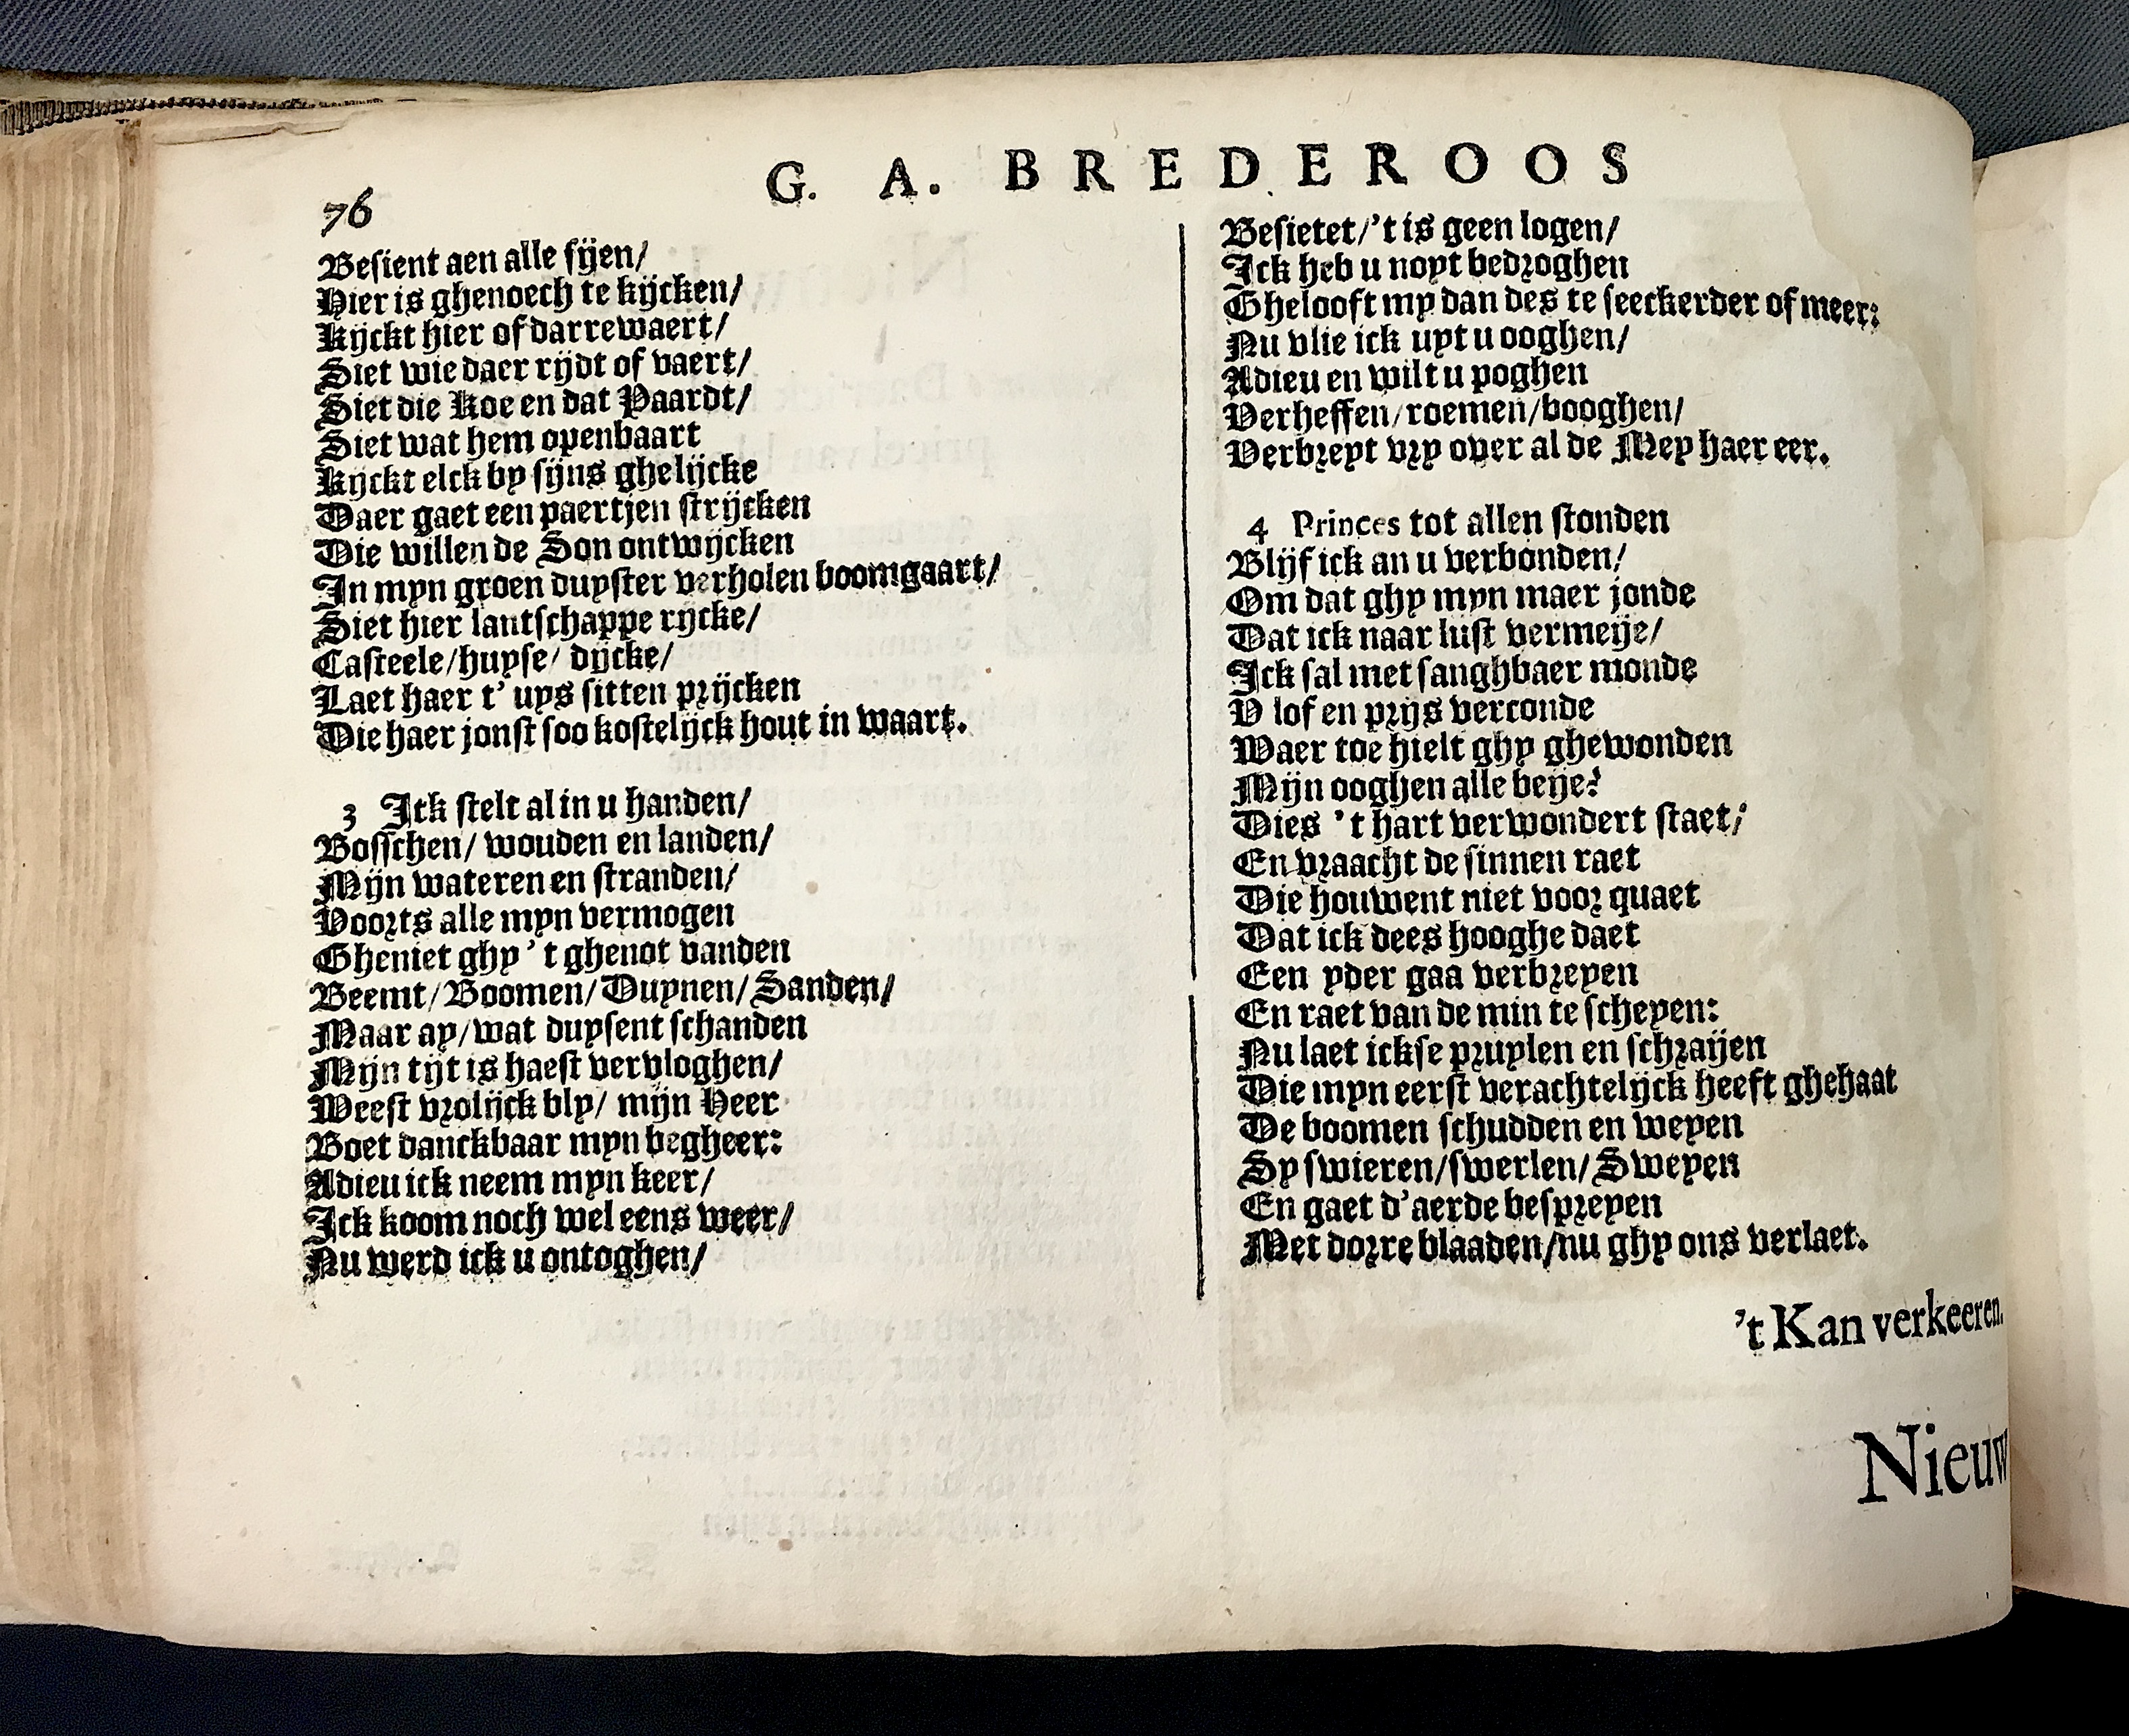 76
G. A. BREDEROOS
Besient aen alle sijen/
Hier is ghenoech te kijcken/
Kijckt hier of darrewaert/
Siet wie daer rijdt of vaert/
Siet die Koe en dat Paardt/
Siet wat hem openbaart
Kijckt elck by sijns ghelijcke
Daer gaet een paertjen strijcken
Die willen de Son ontwijcken
In myn groen duyster verholen boomgaart/
Siet hier lantschappe rijcke/
Casteele/huyse/ dijcke/
Laet haer t' uys sitten prijcken
Die haer jonst soo kostelijck hout in waart.
3 Ick stelt al in u handen/
Bosschen/ wouden en landen/
Mijn wateren en stranden/
Voorts alle myn vermogen
Gheniet ghy 't ghenot vanden
Beemt/Boomen/Duynen/Sanden/
Maar ay/wat duysent schanden
Mijn tijt is haest vervloghen/
Weest vrolijck bly/ mijn Heer
Boet danckbaar myn begheer:
Adieu ick neem myn keer/
Ick koom noch wel eens weer/
Nu werd ick u ontoghen/
Besietet/'t is geen logen/
Ick heb u noyt bedroghen
Ghelooft my dan des te seeckerder of meer:
Nu vlie ick uyt u ooghen/
Adieu en wilt u poghen
Verheffen/roemen/booghen/
Verbreyt vry over al de Mey haer eer.
4 Princes tot allen stonden
Blijf ick an u verbonden/
Om dat ghy myn maer jonde
Dat ick naar lust vermeije/
Ick sal met sanghbaer monde
V lof en prijs verconde
Waer toe hielt ghy ghewonden
Mijn ooghen alle beije?
Dies 't hart verwondert staet;
En vraacht de sinnen raet
Die houwent niet voor quaet
Dat ick dees hooghe daet
Een yder gaa verbreyen
En raet van de min te scheyen:
Nu laet ickse pruylen en schraijen
Die myn eerst verachtelijck heeft ghehaat
De boomen schudden en weyen
Sy swieren/swerlen/Sweyen
En gaet d'aerde bespreyen
Met dorre blaaden/nu ghy ons verlaet.
't Kan verkeeren.
Nieuw